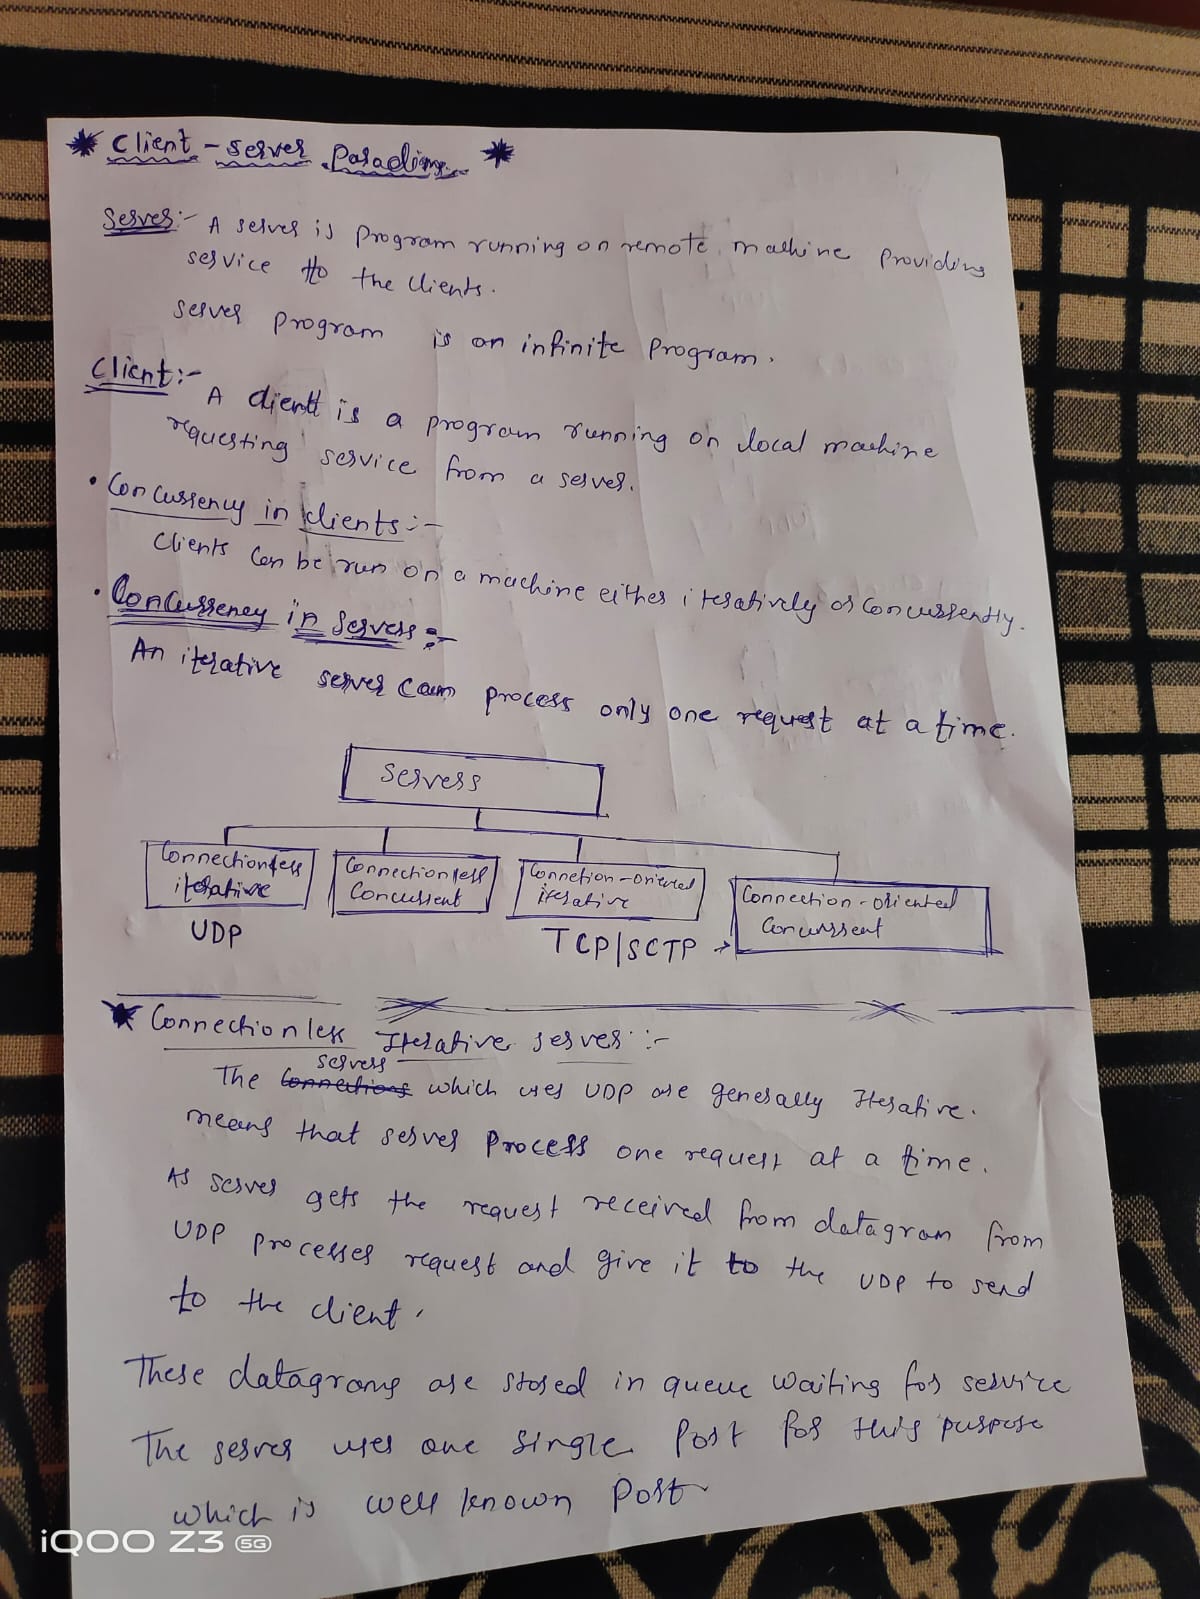 Client - Server Paradim
Server:- A server is program running on remote machine providing
service to the clients.
server program is an infinite program.
Client:-
A client is a program running on local machine
requesting service from a server.
• Concurrency in clients:-
Clients can be run on a machine either iteratively or concurrently.
• Concurrency in Servers:-
An iterative server can process only one request at a time.
Servers
Connectionless
iterative
Connectionless
Concurrent
Connetion-oriented
iterative
Connection-oriented
Concurrent
UDP
TCP/SCTP →
Connectionless Iterative server:-
servers
The Connections which uses UDP are generally Iterative.
means that server Process one request at a time.
As server gets the request received from datagram from
UDP processes request and give it to the UDP to send
to the client.
These datagrams are stored in queue waiting for service
The server uses one single Port for this purpose
which is well known port
iQOO Z3 5G